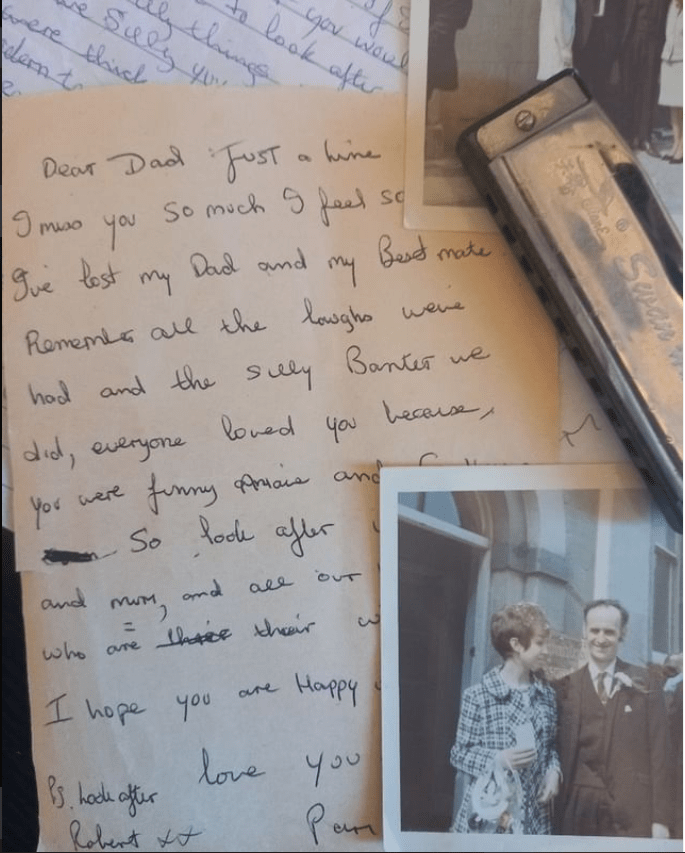 you
things
to look after
silly
Dear Dad Just a line
I miss you so much I feel so
I've lost my Dad and my Best mate
Remember all the laughs weve
had and the silly Banter we
did, everyone loved you because,
you were funny and
So look after
and mum, and all our
who are their
I hope you are Happy
love you
Ps. look after
Robert xx Pam
Swan